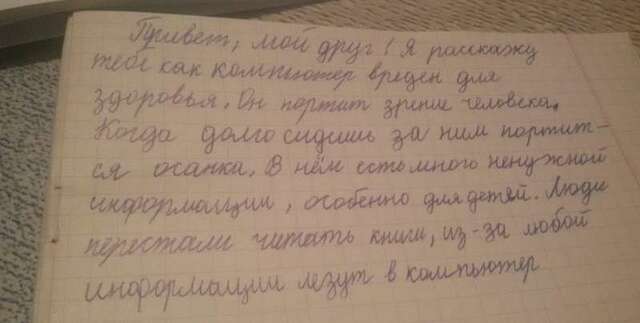 Привет, мой друг! Я расскажу
тебе как компьютер вреден для
здоровья. Он портит зрение человека.
Когда долго сидишь за ним портит-
ся осанка. В нём есть много ненужной
информации, особенно для детей. Люди
перестали читать книги, из-за любой
информации лезут в компьютер